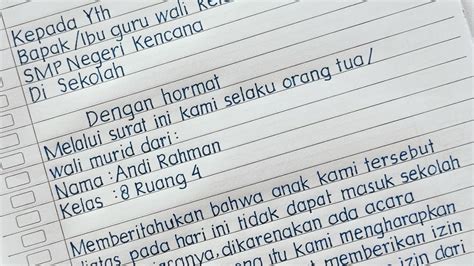 Kepada Yth
Bapak/Ibu guru wali
SMP Negeri Kencana
Di Sekolah
Dengan hormat
Melalui surat ini kami selaku orang tua/
wali murid dari:
Nama : Andi Rahman
Kelas : 8 Ruang 4
Memberitahukan bahwa anak kami tersebut
diatas pada hari ini tidak dapat masuk sekolah
dikarenakan ada acara
itu kami mengharapkan
memberikan izin